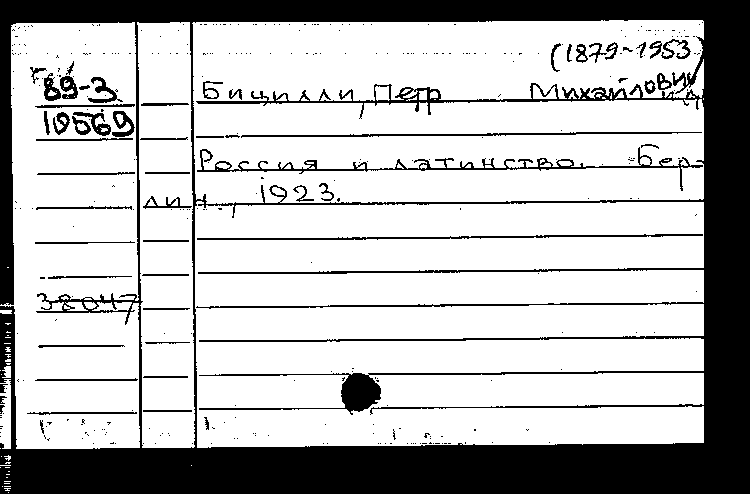 (1879-1953)
89-3
Бицилли, Петр Михайлович и др
10569
Россия и латинство. Бер-
лин, 1923.
38047